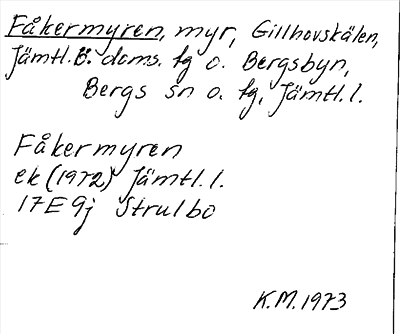 Fåkermyren, myr, Gillhovskälen,
Jämtl.B. doms. fg o. Bergsbyn,
Bergs sn o. fg, Jämtl.l.
Fåkermyren
ek (1972) Jämtl.l.
17E 9j Strulbo
K.M.1973